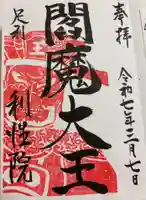 奉拝
令和七年三月七日
閻魔大王
足利
利性院